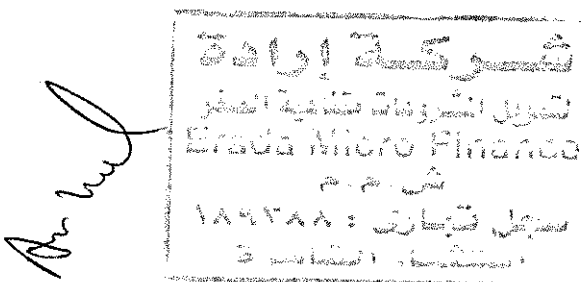 شركة إرادة
لتمويل المشروعات متناهية الصغر
Erada Micro Finance
ش.م.م
سجل تجارى : ١٨٩٣٨٨